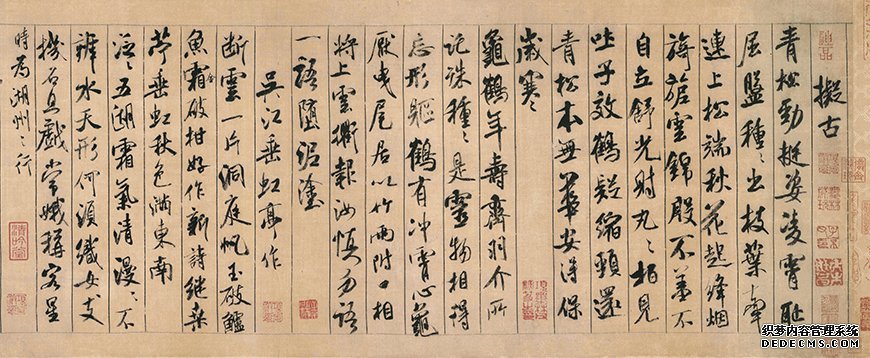 擬古
青松勁挺姿凌霄恥
屈盤種〻出枝葉牽
連上松端秋花起絳烟
旖旎雲錦殷不羞不
自立舒光射丸〻柏見
吐子效鶴疑縮頸還
青松本無華安得保
歲寒
龜鶴年壽齊羽介所
託殊種〻是靈物相得
忘形軀鶴有冲霄心龜
厭曳尾居以竹兩附口相
將上雲衢報汝慎勿語
一語墮泥塗
吳江垂虹亭作
断雲一片洞庭帆玉破鱸
魚霜破柑好作新詩繼桑
苧垂虹秋色滿東南
泛〻五湖霜氣清漫〻不
辨水天形何須織女支
機石且戲常娥稱客星
時為湖州之行
织梦内容管理系统
DEDECMS.COM